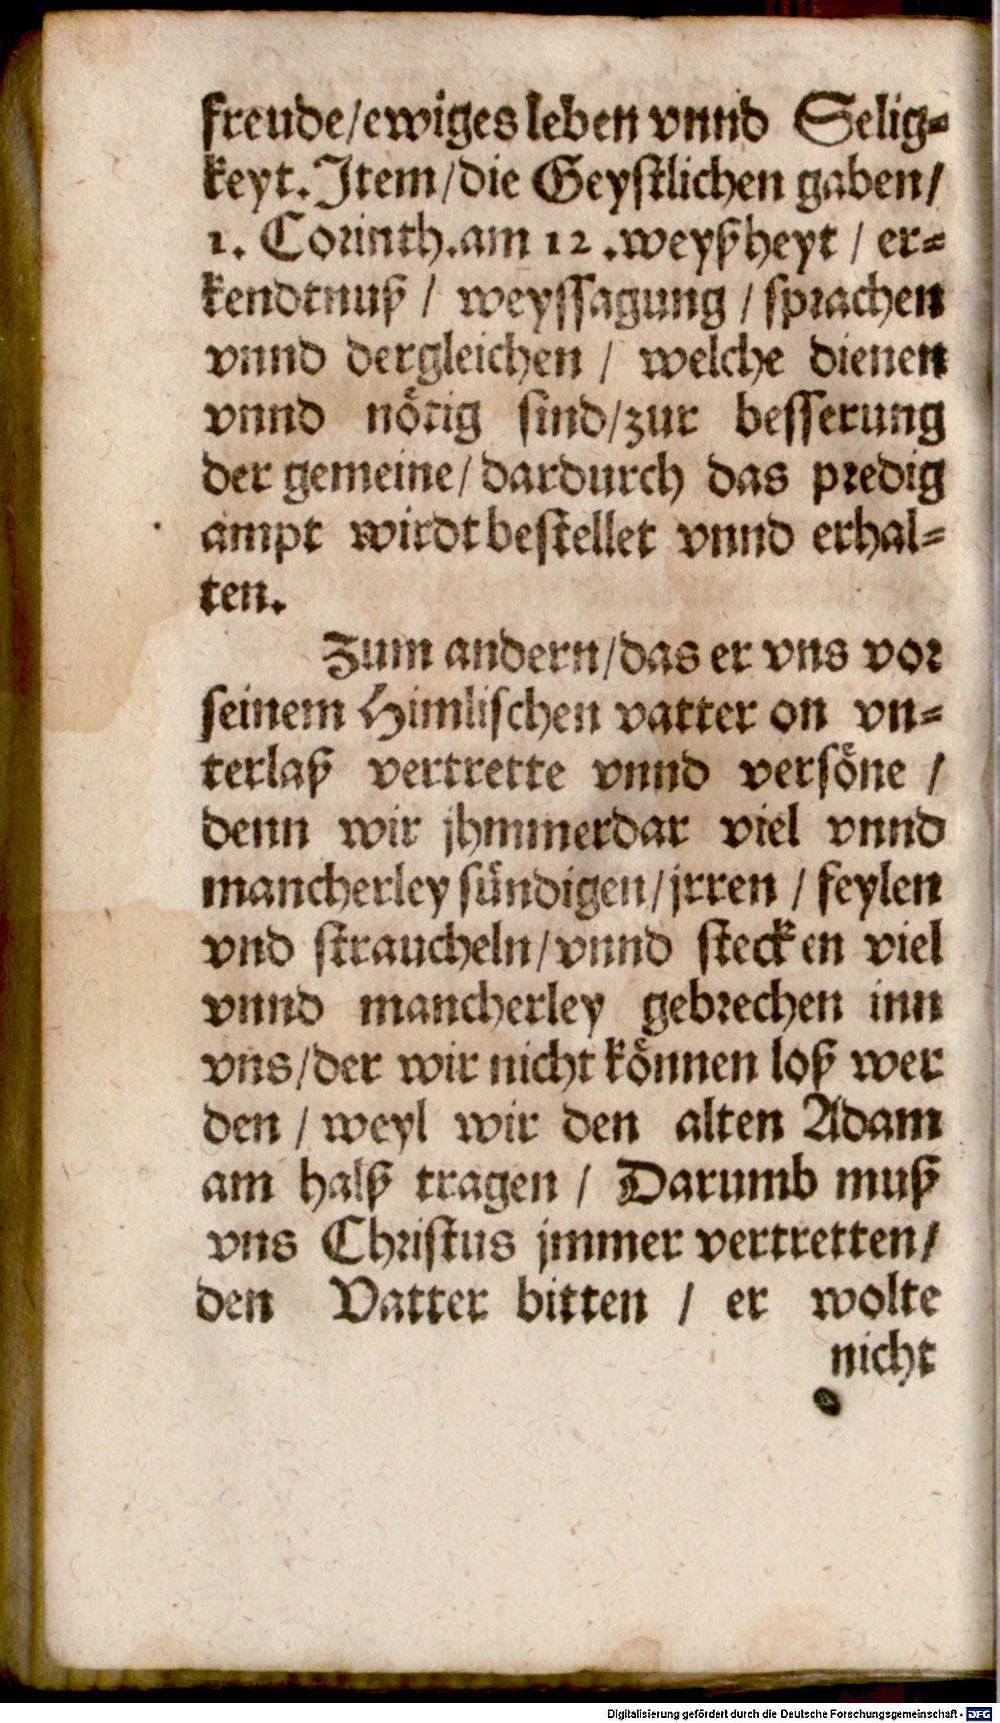 freude/ewiges leben vnnd Selig-
keyt. Item/die Geystlichen gaben/
1. Corinth.am 12.weyßheyt / er-
kendtnuß / weyssagung / sprachen
vnnd dergleichen / welche dienen
vnnd nötig sind/zur besserung
der gemeine/dardurch das predig
ampt wirdt bestellet vnnd erhal-
ten.
Zum andern/das er vns vor
seinem Himlischen vatter on vn-
terlaß vertrette vnnd versöne /
denn wir jhmmerdar viel vnnd
mancherley sündigen/jrren / feylen
vnd straucheln/vnnd stecken viel
vnnd mancherley gebrechen inn
vns/der wir nicht können loß wer
den / weyl wir den alten Adam
am halß tragen / Darumb muß
vns Christus jmmer vertretten/
den Vatter bitten / er wolte
nicht
Digitalisierung gefördert durch die Deutsche Forschungsgemeinschaft - DFG